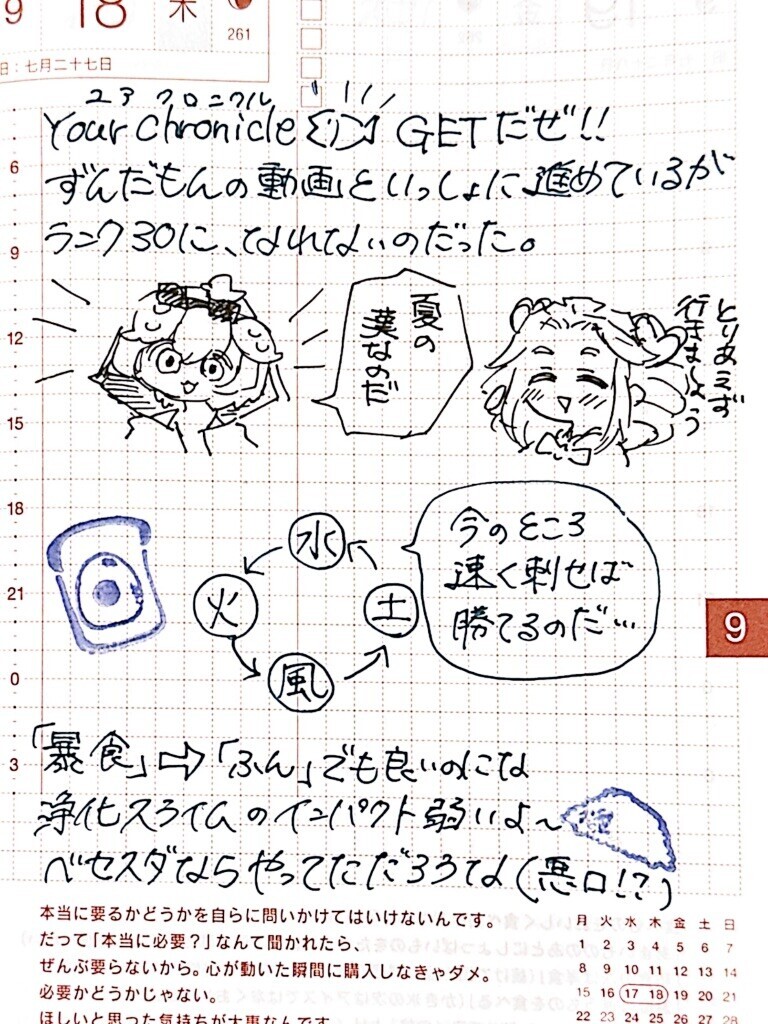 9 18 木
261
日：七月二十七日
ユア クロニクル
Your Chronicle GETだぜ!!
ずんだもんの動画といっしょに進めているが
ランク30に、なれないのだった。
夏の
葉なのだ
とりあえず
行きましょう
6
9
12
15
18
21
0
3
水
火
土
風
今のところ
速く刺せば
勝てるのだ…
9
「暴食」⇨「ふん」でも良いのにな
浄化スライムのインパクト弱いよ〜
ベセスダならやってただろうな(悪口!?)
本当に要るかどうかを自らに問いかけてはいけないんです。
だって「本当に必要？」なんて聞かれたら、
ぜんぶ要らないから。心が動いた瞬間に購入しなきゃダメ。
必要かどうかじゃない。
ほしいと思った気持ちが大事なんです
月 火 水 木 金 土 日
1 2 3 4 5 6 7
8 9 10 11 12 13 14
15 16 17 18 19 20 21
22 23 24 25 26 27 28